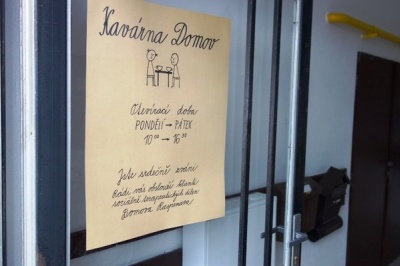 Kavárna Domov
Otevírací doba
PONDĚLÍ → PÁTEK
10⁰⁰ → 16³⁰
Jste srdečně zváni
Rádi vás obslouží klienti
sociálně terapeutických dílen
Domova Kaspernova